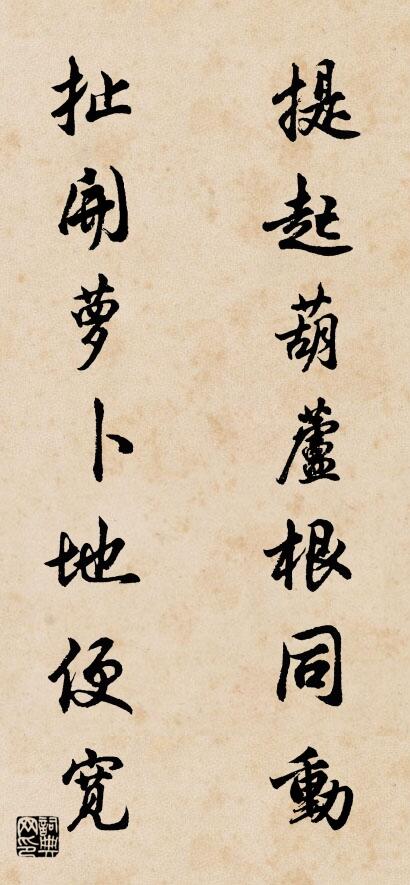 提起葫蘆根同動
扯開萝卜地便寬
詞典网印